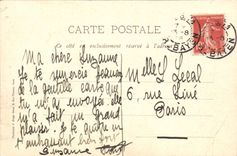 CARTE POSTALE
Ce côté est exclusivement réservé à l'adresse
Ma chère Suzanne
Je te remercie beaucoup
de la gentille carte que
tu m'as envoyée elle
m'a fait un grand
plaisir. Je te quitte en
t'embrassant bien fort
Suzanne
Melle L Lecal
6 rue Liné
Paris